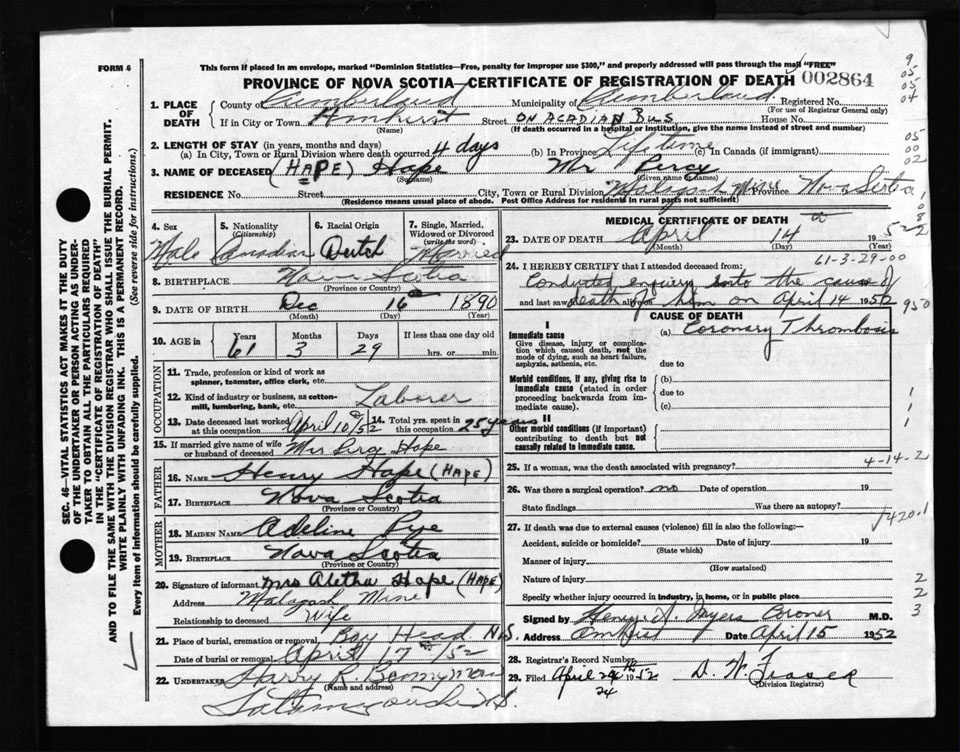 FORM 6
This form if placed in an envelope, marked "Dominion Statistics—Free, penalty for improper use $300," and properly addressed will pass through the mail "FREE"
PROVINCE OF NOVA SCOTIA—CERTIFICATE OF REGISTRATION OF DEATH 002864
1. PLACE OF DEATH County of Cumberland Municipality of Cumberland Registered No.
(For use of Registrar General only)
If in City or Town Amherst Street ON ACADIAN BUS House No.
(Name) (If death occurred in a hospital or institution, give the name instead of street and number)
2. LENGTH OF STAY (in years, months and days)
(a) In City, Town or Rural Division where death occurred 4 days (b) In Province Lifetime (c) In Canada (if immigrant)
3. NAME OF DECEASED (HAPE) Hape Mr Percy
(Surname) (Given name or names)
RESIDENCE No. Street City, Town or Rural Division Malagash Mine Province Nova Scotia
(Residence means usual place of abode. Post Office Address for residents in rural parts not sufficient)
4. Sex Male
5. Nationality (Citizenship) Canadian
6. Racial Origin Dutch
7. Single, Married, Widowed or Divorced (write the word) Married
8. BIRTHPLACE Nova Scotia
(Province or Country)
9. DATE OF BIRTH Dec 16th 1890
(Month) (Day) (Year)
10. AGE in Years Months Days If less than one day old
61 3 29 hrs. or min.
OCCUPATION
11. Trade, profession or kind of work as spinner, teamster, office clerk, etc.
12. Kind of industry or business, as cotton-mill, lumbering, bank, etc. Laborer
13. Date deceased last worked at this occupation April 10/52
14. Total yrs. spent in this occupation 25 years
15. If married give name of wife or husband of deceased Mrs Percy Hape
FATHER
16. NAME Henry Hape (HAPE)
17. BIRTHPLACE Nova Scotia
(Province or Country)
MOTHER
18. MAIDEN NAME Adeline Pye
19. BIRTHPLACE Nova Scotia
(Province or Country)
20. Signature of informant Mrs Aletha Hape (HAPE)
Address Malagash Mine
Relationship to deceased Wife
21. Place of burial, cremation or removal Bay Head N.S.
Date of burial or removal April 17th /52
22. UNDERTAKER Harry R. Bonnyman
(Name and address)
Tatamagouche N.S.
MEDICAL CERTIFICATE OF DEATH
23. DATE OF DEATH April 14 1952
(Month) (Day) (Year)
61-3-29-00
24. I HEREBY CERTIFY that I attended deceased from:
Conducted enquiry into the cause of
and last saw death of him on April 14 1952
CAUSE OF DEATH
I
Immediate cause (a) Coronary Thrombosis
Give disease, injury or complication which caused death, not the mode of dying, such as heart failure, asphyxia, asthenia, etc.
due to
Morbid conditions, if any, giving rise to immediate cause (stated in order proceeding backwards from immediate cause). (b)
due to
(c)
II
Other morbid conditions (if important) contributing to death but not causally related to immediate cause.
25. If a woman, was the death associated with pregnancy? 4-14-2
26. Was there a surgical operation? no Date of operation 19
State findings Was there an autopsy?
420.1
27. If death was due to external causes (violence) fill in also the following:—
Accident, suicide or homicide? Date of injury 19
(State which)
Manner of injury
(How sustained)
Nature of injury
Specify whether injury occurred in industry, in home, or in public place
Signed by Henry A. Myers Coroner M.D.
Address Amherst Date April 15 1952
28. Registrar's Record Number
29. Filed April 24th 1952 D. W. Fraser
24
(Division Registrar)
SEC. 46—VITAL STATISTICS ACT MAKES IT THE DUTY
OF THE UNDERTAKER OR PERSON ACTING AS UNDER-
TAKER TO OBTAIN ALL THE PARTICULARS REQUIRED
IN THE "CERTIFICATE OF REGISTRATION OF DEATH"
AND TO FILE THE SAME WITH THE DIVISION REGISTRAR WHO SHALL ISSUE THE BURIAL PERMIT.
WRITE PLAINLY WITH UNFADING INK. THIS IS A PERMANENT RECORD.
Every item of information should be carefully supplied. (See reverse side for instructions.)
9
05
05
04
05
00
02
950
1
1
1
2
2
3